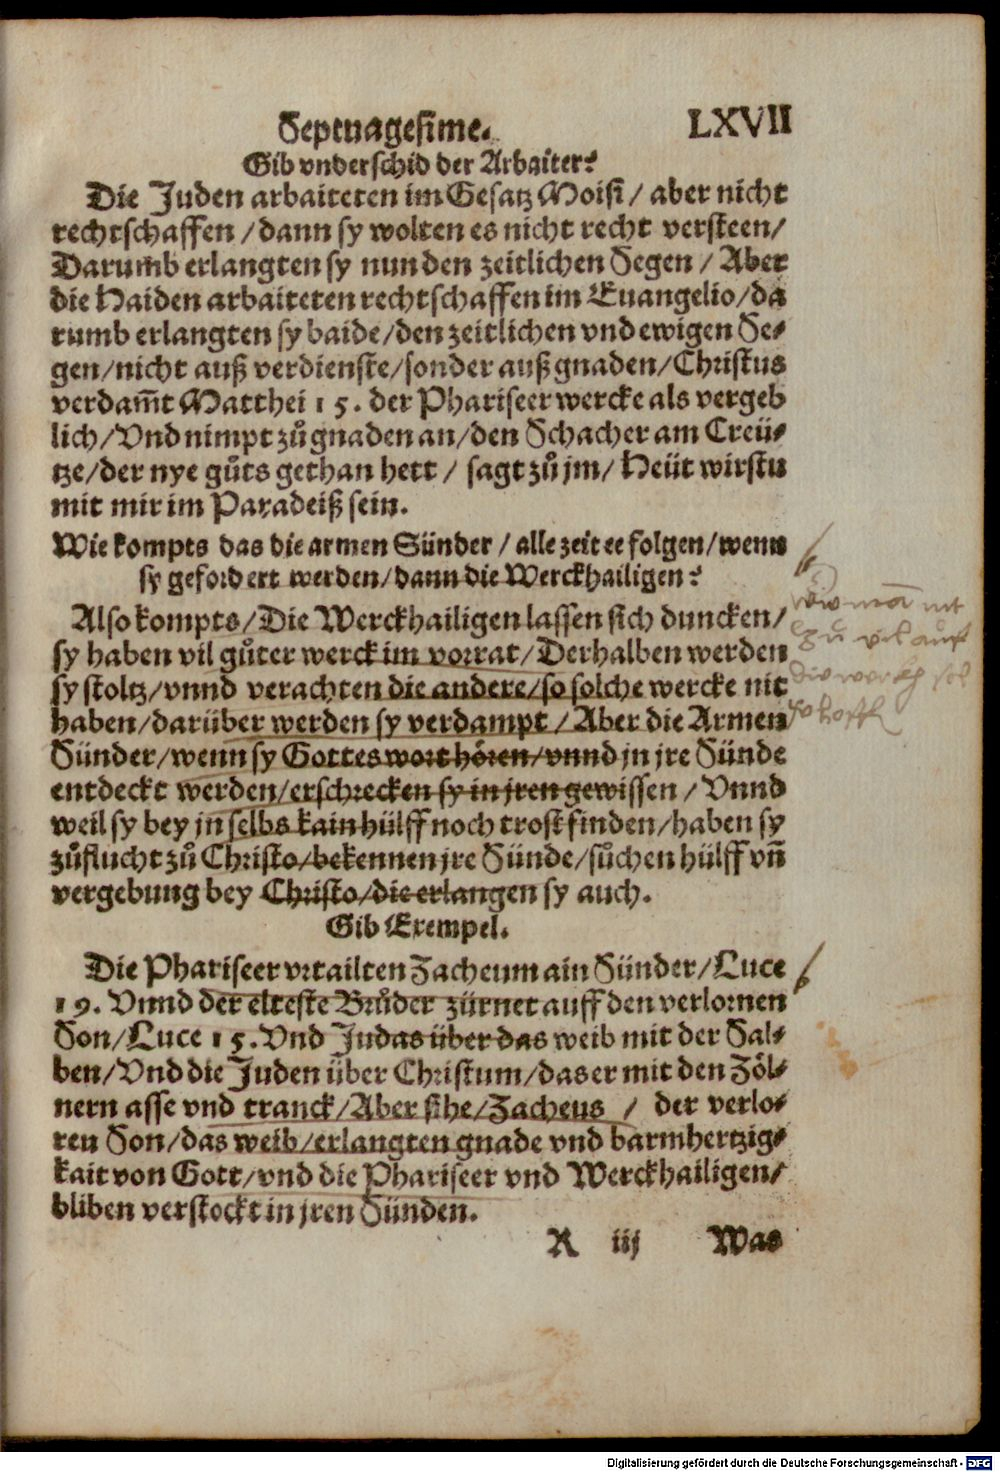 Septuagesime. LXVII
Gib vnderschid der Arbaiter?
Die Juden arbaiteten im Gesatz Moisi / aber nicht
rechtschaffen / dann sy wolten es nicht recht versteen /
Darumb erlangten sy nun den zeitlichen Segen / Aber
die Haiden arbaiteten rechtschaffen im Euangelio / da
rumb erlangten sy baide / den zeitlichen vnd ewigen Se-
gen / nicht auß verdienste / sonder auß gnaden / Christus
verdam̃t Matthei 15. der Phariseer wercke als vergeb
lich / Vnd nimpt zů gnaden an / den Schacher am Creü-
tze / der nye gůts gethan hett / sagt zů jm / Heüt wirstu
mit mir im Paradeiß sein.
Wie kompts das die armen Sünder / alle zeit ee folgen / wenn
sy gefordert werden / dann die Werckhailigen?
Also kompts / Die Werckhailigen lassen sich duncken /
sy haben vil gůter werck im vorrat / Derhalben werden
sy stoltz / vnnd verachten die andere / so solche wercke nit
haben / darüber werden sy verdampt / Aber die Armen
Sünder / wenn sy Gottes wort hören / vnnd jn jre Sünde
entdeckt werden / erschrecken sy in jren gewissen / Vnnd
weil sy bey jn selbs kain hülff noch trost finden / haben sy
zůflucht zů Christo / bekennen jre Sünde / sůchen hülff vñ
vergebung bey Christo / die erlangen sy auch.
Gib Exempel.
Die Phariseer vrtailten Zacheum ain Sünder / Luce
19. Vnnd der elteste Brůder zürnet auff den verlornen
Son / Luce 15. Vnd Judas über das weib mit der Sal-
ben / Vnd die Juden über Christum / das er mit den Zöl-
nern asse vnd tranck / Aber sihe / Zacheus / der verlo-
ren Son / das weib / erlangten gnade vnd barmhertzig-
kait von Gott / vnd die Phariseer vnd Werckhailigen /
bliben verstockt in jren Sünden.
R iij Was
man nit
zů vil auff
die werckh sol
Digitalisierung gefördert durch die Deutsche Forschungsgemeinschaft - DFG